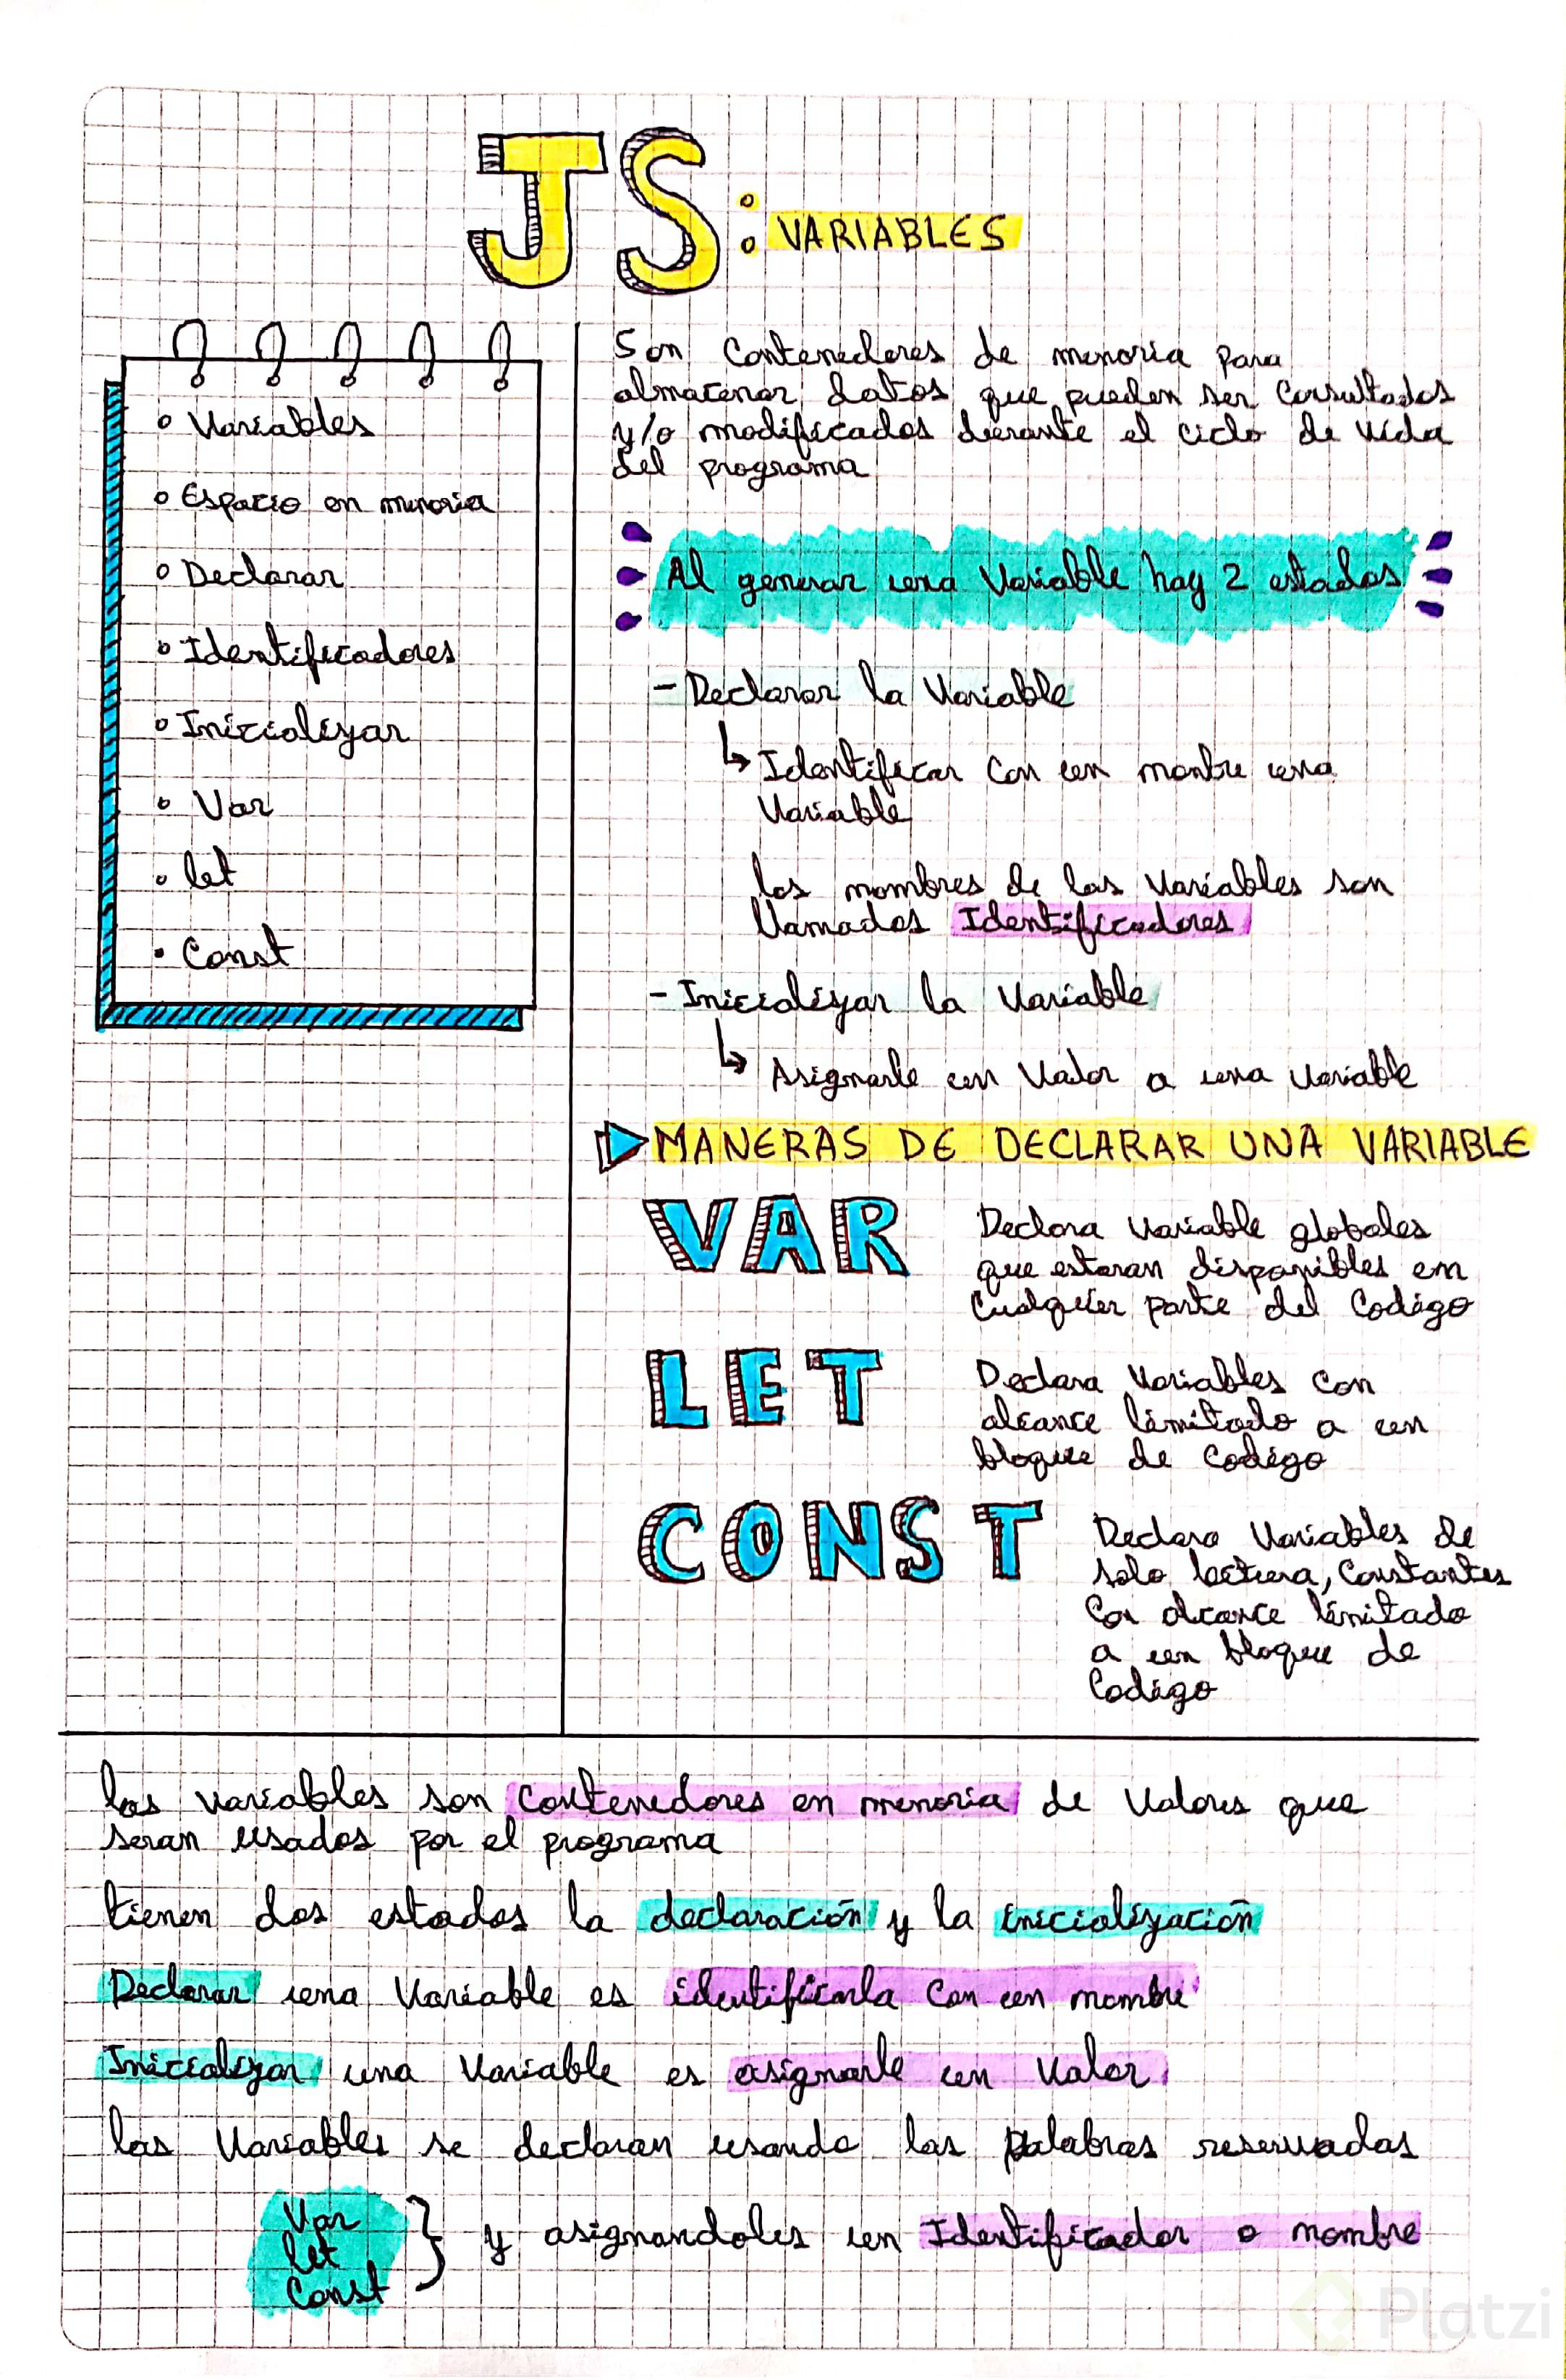 JS: VARIABLES
• Variables
• Espacio en memoria
• Declarar
• Identificadores
• Inicializar
• Var
• let
• Const
Son Contenedores de memoria para
almacenar datos que pueden ser Consultados
y/o modificados durante el ciclo de vida
del programa
Al generar una Variable hay 2 estados
- Declarar la Variable
↳ Identificar Con un nombre una
Variable
los nombres de las Variables son
llamados Identificadores
- Inicializar la Variable
↳ Asignarle un Valor a una Variable
▷ MANERAS DE DECLARAR UNA VARIABLE
VAR
Declara variable globales
que estaran disponibles en
Cualquier parte del Codigo
LET
Declara Variables Con
alcance limitado a un
bloque de Codigo
CONST
Declara Variables de
solo lectura, Constantes
Con alcance limitado
a un bloque de
Codigo
las variables son contenedores en memoria de Valores que
seran usados por el programa
tienen dos estados la declaración y la inicialización
Declarar una Variable es identificarla Con un nombre
Inicializar una Variable es asignarle un Valor
las Variables se declaran usando las palabras reservadas
Var
let
Const
} y asignandoles un Identificador o nombre
Platzi